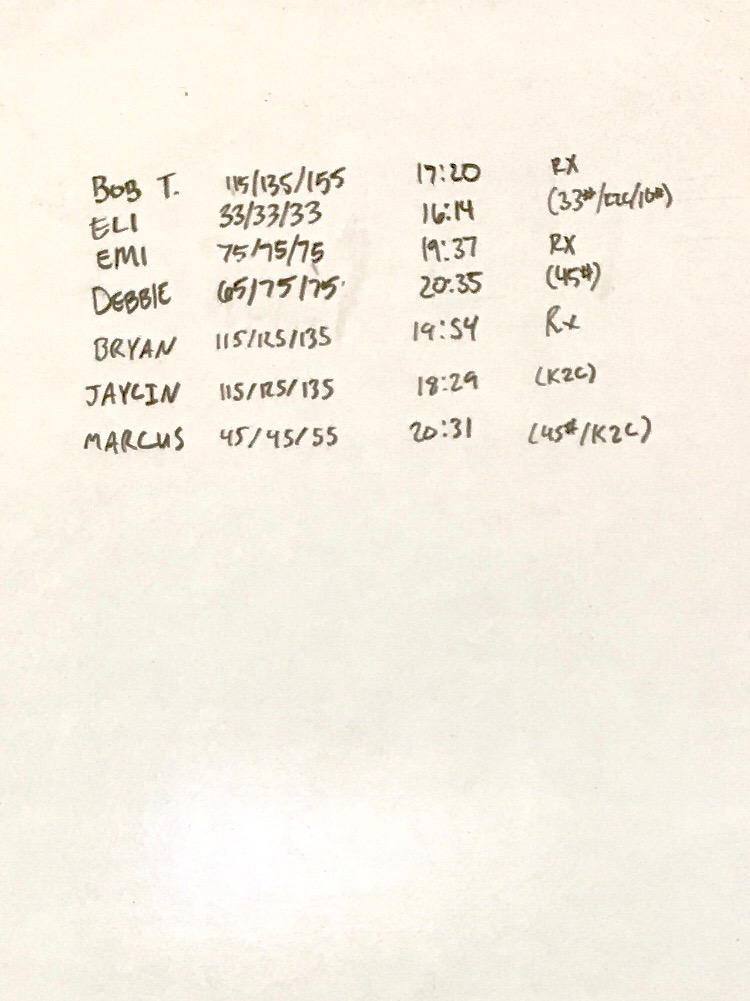 BOB T. 115/135/155 17:20 RX
ELI 33/33/33 16:14 (33#/K2C/10#)
EMI 75/75/75 19:37 RX
DEBBIE 65/75/75 20:35 (45#)
BRYAN 115/125/135 19:54 Rx
JAYLIN 115/125/135 18:29 (K2C)
MARCUS 45/45/55 20:31 (45#/K2C)